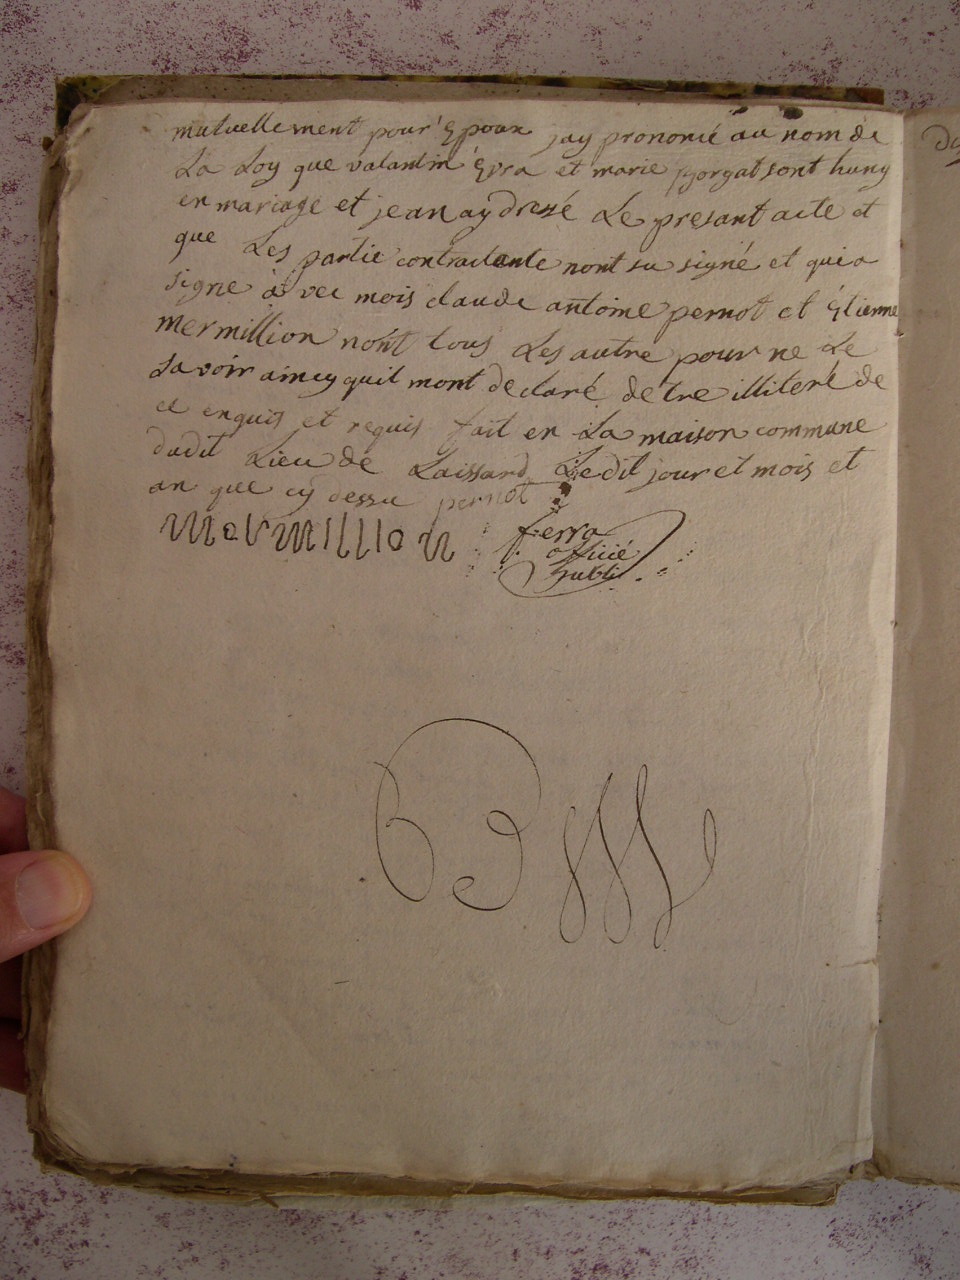 mutuellement pour Epoux jay prononié au nom de
La Loy que valantin Evra et marie gorgat sont huny
en mariage et jean ay dressé Le presant acte et
que Les partie contractante nont su signé et qui a
signe à vec mois claude antoine pernot et Etienne
mermillion nont tous Les autre pour ne Le
savoir aincy quil mont declaré detre illiteré de
ce enquis et requis fait en La maison commune
dudit Lieu de Laissard Ledit jour et mois et
an que cy dessu pernot
Mermillion ferra
officié
publi